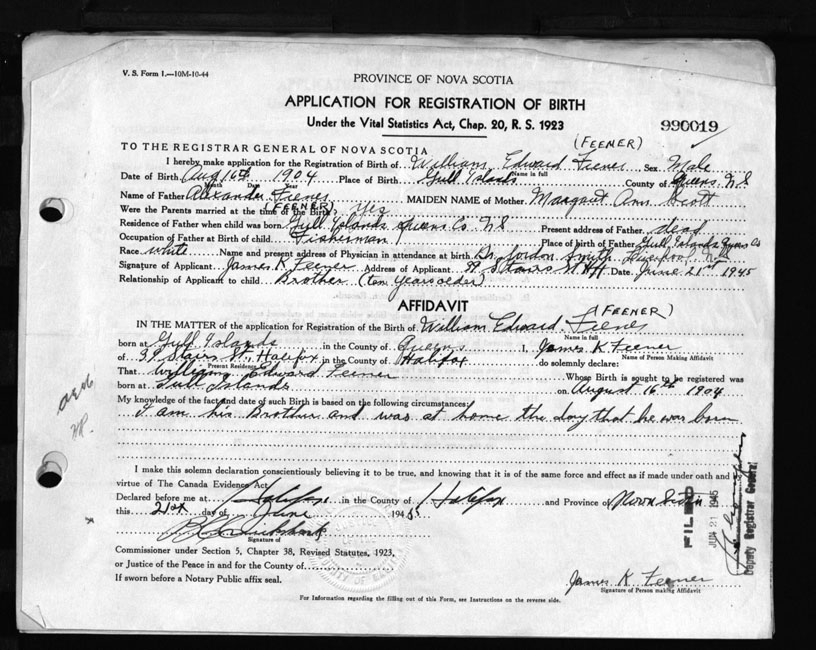 V. S. Form 1.—10M-10-44
PROVINCE OF NOVA SCOTIA
APPLICATION FOR REGISTRATION OF BIRTH
Under the Vital Statistics Act, Chap. 20, R. S. 1923
990019
(FEENER)
TO THE REGISTRAR GENERAL OF NOVA SCOTIA
I hereby make application for the Registration of Birth of William Edward Feener Sex Male
Name in full
Date of Birth Aug 16th 1904 Place of Birth Gull Islands County of Queens N.S
Month Day Year
Name of Father Alexander Feener MAIDEN NAME of Mother Margaret Ann Scott
(FEENER)
Were the Parents married at the time of the Birth? Yes
Residence of Father when child was born Gull Islands Queens Co. N.S Present address of Father dead
Occupation of Father at Birth of child Fisherman Place of birth of Father Gull Islands Queens Co
Race white Name and present address of Physician in attendance at birth Dr. Jordon Smith Liverpool N.S
Signature of Applicant James K Feener Address of Applicant Stairs St Hfx Date June 21st 1945
Relationship of Applicant to child Brother (ten years older)
AFFIDAVIT
(FEENER)
IN THE MATTER of the application for Registration of the Birth of William Edward Feener
Name in full
born at Gull Islands in the County of Queens I, James K Feener
Name of Person Making Affidavit
of Stairs St., Halifax in the County of Halifax do solemnly declare:
Present Residence
That William Edward Feener Whose Birth is sought to be registered was
born at Gull Islands on August 16th 1904
My knowledge of the fact and date of such Birth is based on the following circumstances:
I am his Brother and was at home the day that he was born
I make this solemn declaration conscientiously believing it to be true, and knowing that it is of the same force and effect as if made under oath and by
virtue of The Canada Evidence Act.
Declared before me at Halifax in the County of Halifax and Province of Nova Scotia
this 21st day of June 1945
Signature of
Commissioner under Section 5, Chapter 38, Revised Statutes, 1923,
or Justice of the Peace in and for the County of
If sworn before a Notary Public affix seal.
James K Feener
Signature of Person making Affidavit
For Information regarding the filling out of this Form, see Instructions on the reverse side.
FILED
JUN 21 1945
Deputy Registrar General